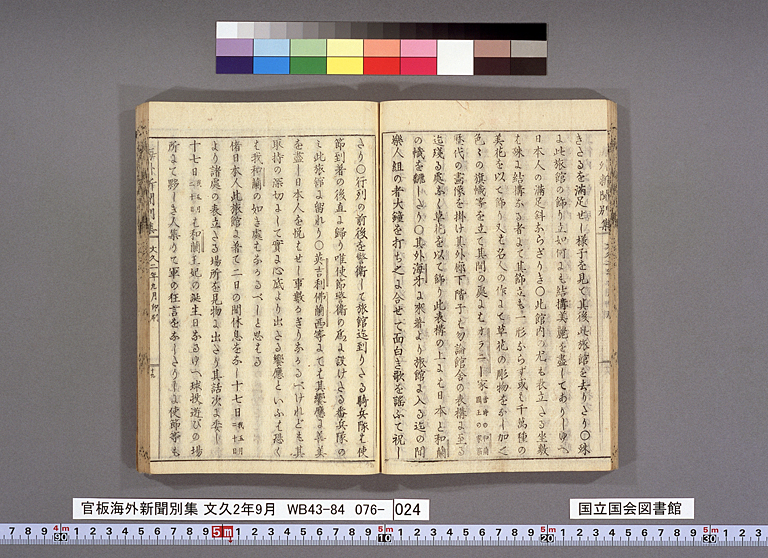 きたるを滿足せし樣子を見て其後此旅館を去りたり〇殊
に此旅館の飾り立如何にも結構美麗を盡してありしゆへ
日本人の滿足斜ならざりき〇此館内の尤も表立たる坐敷
は殊に結構なる者にて其飾立も一形ならず或は千萬種の
美花を以て飾り又は名人の作にて草花の彫物をなし加之
色々の旗幟等を立て其間の處にはオラニー家當時の和蘭國王の家筋
歴代の畫像を掛け其外廊下階子は勿論館舎の表構に至る
迄殘る處なく草花を以て飾り此表構の上にも日本と和蘭
の幟を飜したり〇其外海牙に來着より旅館に入る迄の間
樂人組の者大鐘を打ち之に合せて面白き歌を謠ふて祝し
たり〇行列の前後を警衞して旅館迄到りたる騎兵隊も使
節到着の後直に歸り唯使節警衞の爲に設けたる番兵隊の
ミ此旅館に留れり〇英吉利佛蘭西等にても其饗應に善美
を盡し日本人を悦はせし事數かぎりなかるべけれども其
取持の深切にして實に心底より出たる饗應といふは恐く
は我和蘭の如き處はなかるべしと思はる
偖日本人此旅館に着て二日の間休息をなし十七日我五月二十日
より諸處の表立たる場所を見物に出たり其話次に委し
十七日は和蘭王妃の誕生日なるゆへ球投遊びの場
所にて夥しき人集りて軍の狂言をなしたりしに使節等も
官板海外新聞別集 文久2年9月 WB43-84 076- 024
国立国会図書館